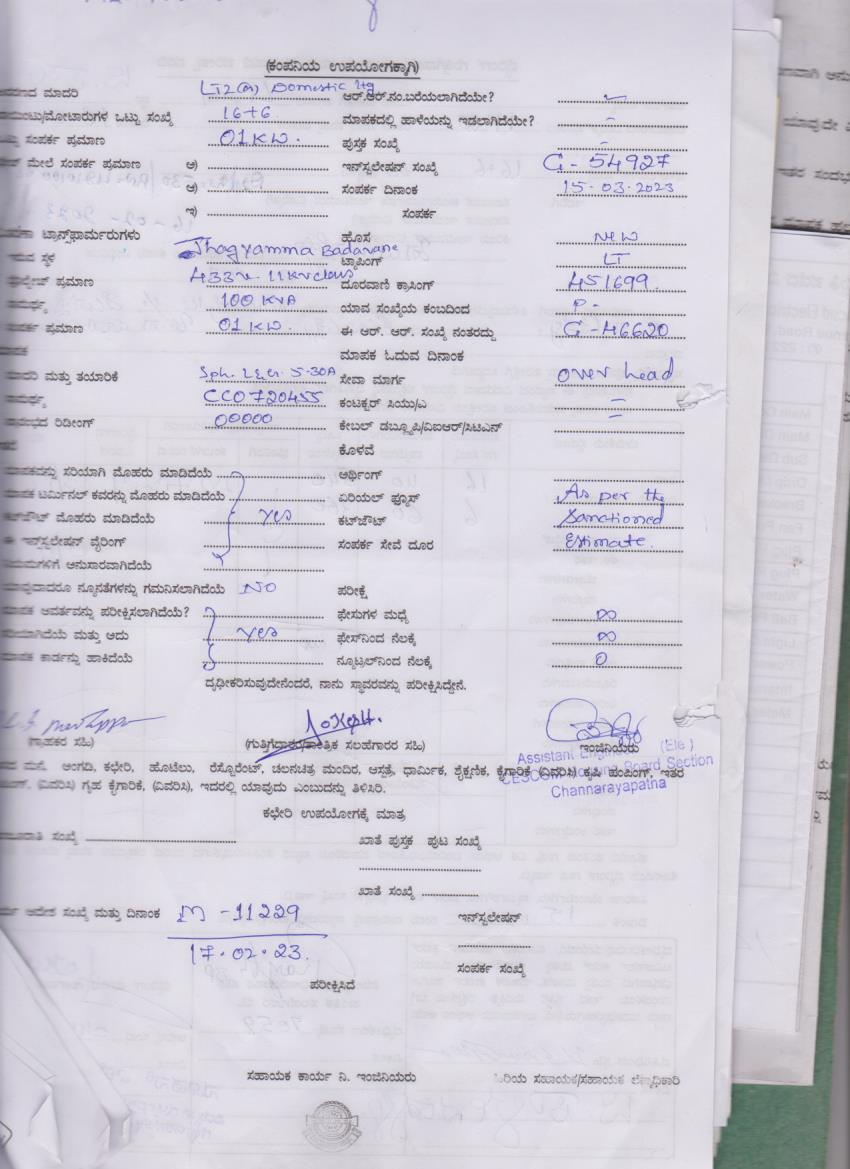 (ಕಂಪನಿಯ ಉಪಯೋಗಕ್ಕಾಗಿ)
ಮಾದರಿ LT2(a) Domestic ltg ಆರ್.ಆರ್.ನಂ.ಬರೆಯಲಾಗಿದೆಯೇ? -
ಒಟ್ಟು ಸಂಖ್ಯೆ 16+6 ಮಾಪಕದಲ್ಲಿ ಹಾಳೆಯನ್ನು ಇಡಲಾಗಿದೆಯೇ? -
ಸಂಪರ್ಕ ಪ್ರಮಾಣ 01KW. ಪುಸ್ತಕ ಸಂಖ್ಯೆ -
ಮೇಲೆ ಸಂಪರ್ಕ ಪ್ರಮಾಣ ಅ) ಇನ್‌ಸ್ಟಲೇಷನ್ ಸಂಖ್ಯೆ G-54927
ಆ) ಸಂಪರ್ಕ ದಿನಾಂಕ 15-03-2023
ಇ) ಸಂಪರ್ಕ
ಟ್ರಾನ್ಸ್‌ಫಾರ್ಮರುಗಳು ಹೊಸ New
ಸ್ಥಳ Badavane ಟ್ಯಾಪಿಂಗ್ LT
ಪ್ರಮಾಣ 433v. 11KV class ದೂರವಾಣಿ ಕ್ರಾಸಿಂಗ್ 451699.
100 KVA ಯಾವ ಸಂಖ್ಯೆಯ ಕಂಬದಿಂದ P-
ಪ್ರಮಾಣ 01 KW. ಈ ಆರ್. ಆರ್. ಸಂಖ್ಯೆ ನಂತರದ್ದು G-46620
ಮಾಪಕ ಓದುವ ದಿನಾಂಕ
ಮತ್ತು ತಯಾರಿಕೆ 5-30A ಸೇವಾ ಮಾರ್ಗ over head
CC0720455 ಕಂಟಕ್ಟರ್ ಸಿಯು/ಎ -
ರಿಡೀಂಗ್ 00000 ಕೇಬಲ್ ಡಬ್ಲ್ಯೂಪಿ/ವಿಐಆರ್/ಸಿಟಿಎನ್ -
ಕೊಳವೆ
ಸರಿಯಾಗಿ ಮೊಹರು ಮಾಡಿದೆಯೆ ಅರ್ಥಿಂಗ್
ಮಾಪಕ ಟರ್ಮಿನಲ್ ಕವರನ್ನು ಮೊಹರು ಮಾಡಿದೆಯೆ ಏರಿಯಲ್ ಫ್ಯೂಸ್ As per the
ಕಟ್‌ಔಟ್ ಮೊಹರು ಮಾಡಿದೆಯೆ yes ಕಟ್‌ಔಟ್ Sanctioned
ಈ ಇನ್‌ಸ್ಟಲೇಷನ್ ವೈರಿಂಗ್ ಸಂಪರ್ಕ ಸೇವೆ ದೂರ Estimate.
ಅನುಸಾರವಾಗಿದೆಯೆ
ನ್ಯೂನತೆಗಳನ್ನು ಗಮನಿಸಲಾಗಿದೆಯೆ NO ಪರೀಕ್ಷೆ
ಮಾಪಕ ಆವರ್ತವನ್ನು ಪರೀಕ್ಷಿಸಲಾಗಿದೆಯೆ? ಫೇಸುಗಳ ಮಧ್ಯೆ ∞
ಮತ್ತು ಅದು yes ಫೇಸ್‌ನಿಂದ ನೆಲಕ್ಕೆ ∞
ಮಾಪಕ ಕಾರ್ಡನ್ನು ಹಾಕಿದೆಯೆ ನ್ಯೂಟ್ರಲ್‌ನಿಂದ ನೆಲಕ್ಕೆ 0
ದೃಢೀಕರಿಸುವುದೇನೆಂದರೆ, ನಾನು ಸ್ಥಾವರವನ್ನು ಪರೀಕ್ಷಿಸಿದ್ದೇನೆ.
(ಗ್ರಾಹಕರ ಸಹಿ) (ಗುತ್ತಿಗೆದಾರರ/ತಾಂತ್ರಿಕ ಸಲಹೆಗಾರರ ಸಹಿ) ಇಂಜಿನಿಯರು
Assistant Engineer (Ele)
ಮನೆ, ಅಂಗಡಿ, ಕಛೇರಿ, ಹೊಟೆಲು, ರೆಸ್ಟೊರೆಂಟ್, ಚಲನಚಿತ್ರ ಮಂದಿರ, ಆಸ್ಪತ್ರೆ, ಧಾರ್ಮಿಕ, ಶೈಕ್ಷಣಿಕ, ಕೈಗಾರಿಕೆ (ವಿವರಿಸಿ) ಕೃಷಿ ಪಂಪಿಂಗ್, ಇತರ
CESCOM Housing Board Section
(ವಿವರಿಸಿ) ಗೃಹ ಕೈಗಾರಿಕೆ, (ವಿವರಿಸಿ), ಇದರಲ್ಲಿ ಯಾವುದು ಎಂಬುದನ್ನು ತಿಳಿಸಿರಿ.
Channarayapatna
ಕಛೇರಿ ಉಪಯೋಗಕ್ಕೆ ಮಾತ್ರ
ಸಂಖ್ಯೆ ಖಾತೆ ಪುಸ್ತಕ ಪುಟ ಸಂಖ್ಯೆ
ಖಾತೆ ಸಂಖ್ಯೆ
ಆದೇಶ ಸಂಖ್ಯೆ ಮತ್ತು ದಿನಾಂಕ M-11229 ಇನ್‌ಸ್ಟಲೇಷನ್
17.02.23.
ಸಂಪರ್ಕ ಸಂಖ್ಯೆ
ಪರೀಕ್ಷಿಸಿದೆ
ಸಹಾಯಕ ಕಾರ್ಯ ನಿ. ಇಂಜಿನಿಯರು ಹಿರಿಯ ಸಹಾಯಕ/ಸಹಾಯಕ ಲೆಕ್ಕಾಧಿಕಾರಿ